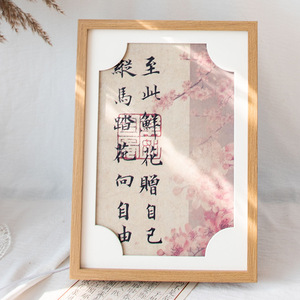 至此鮮花贈自己
縱馬踏花向自由